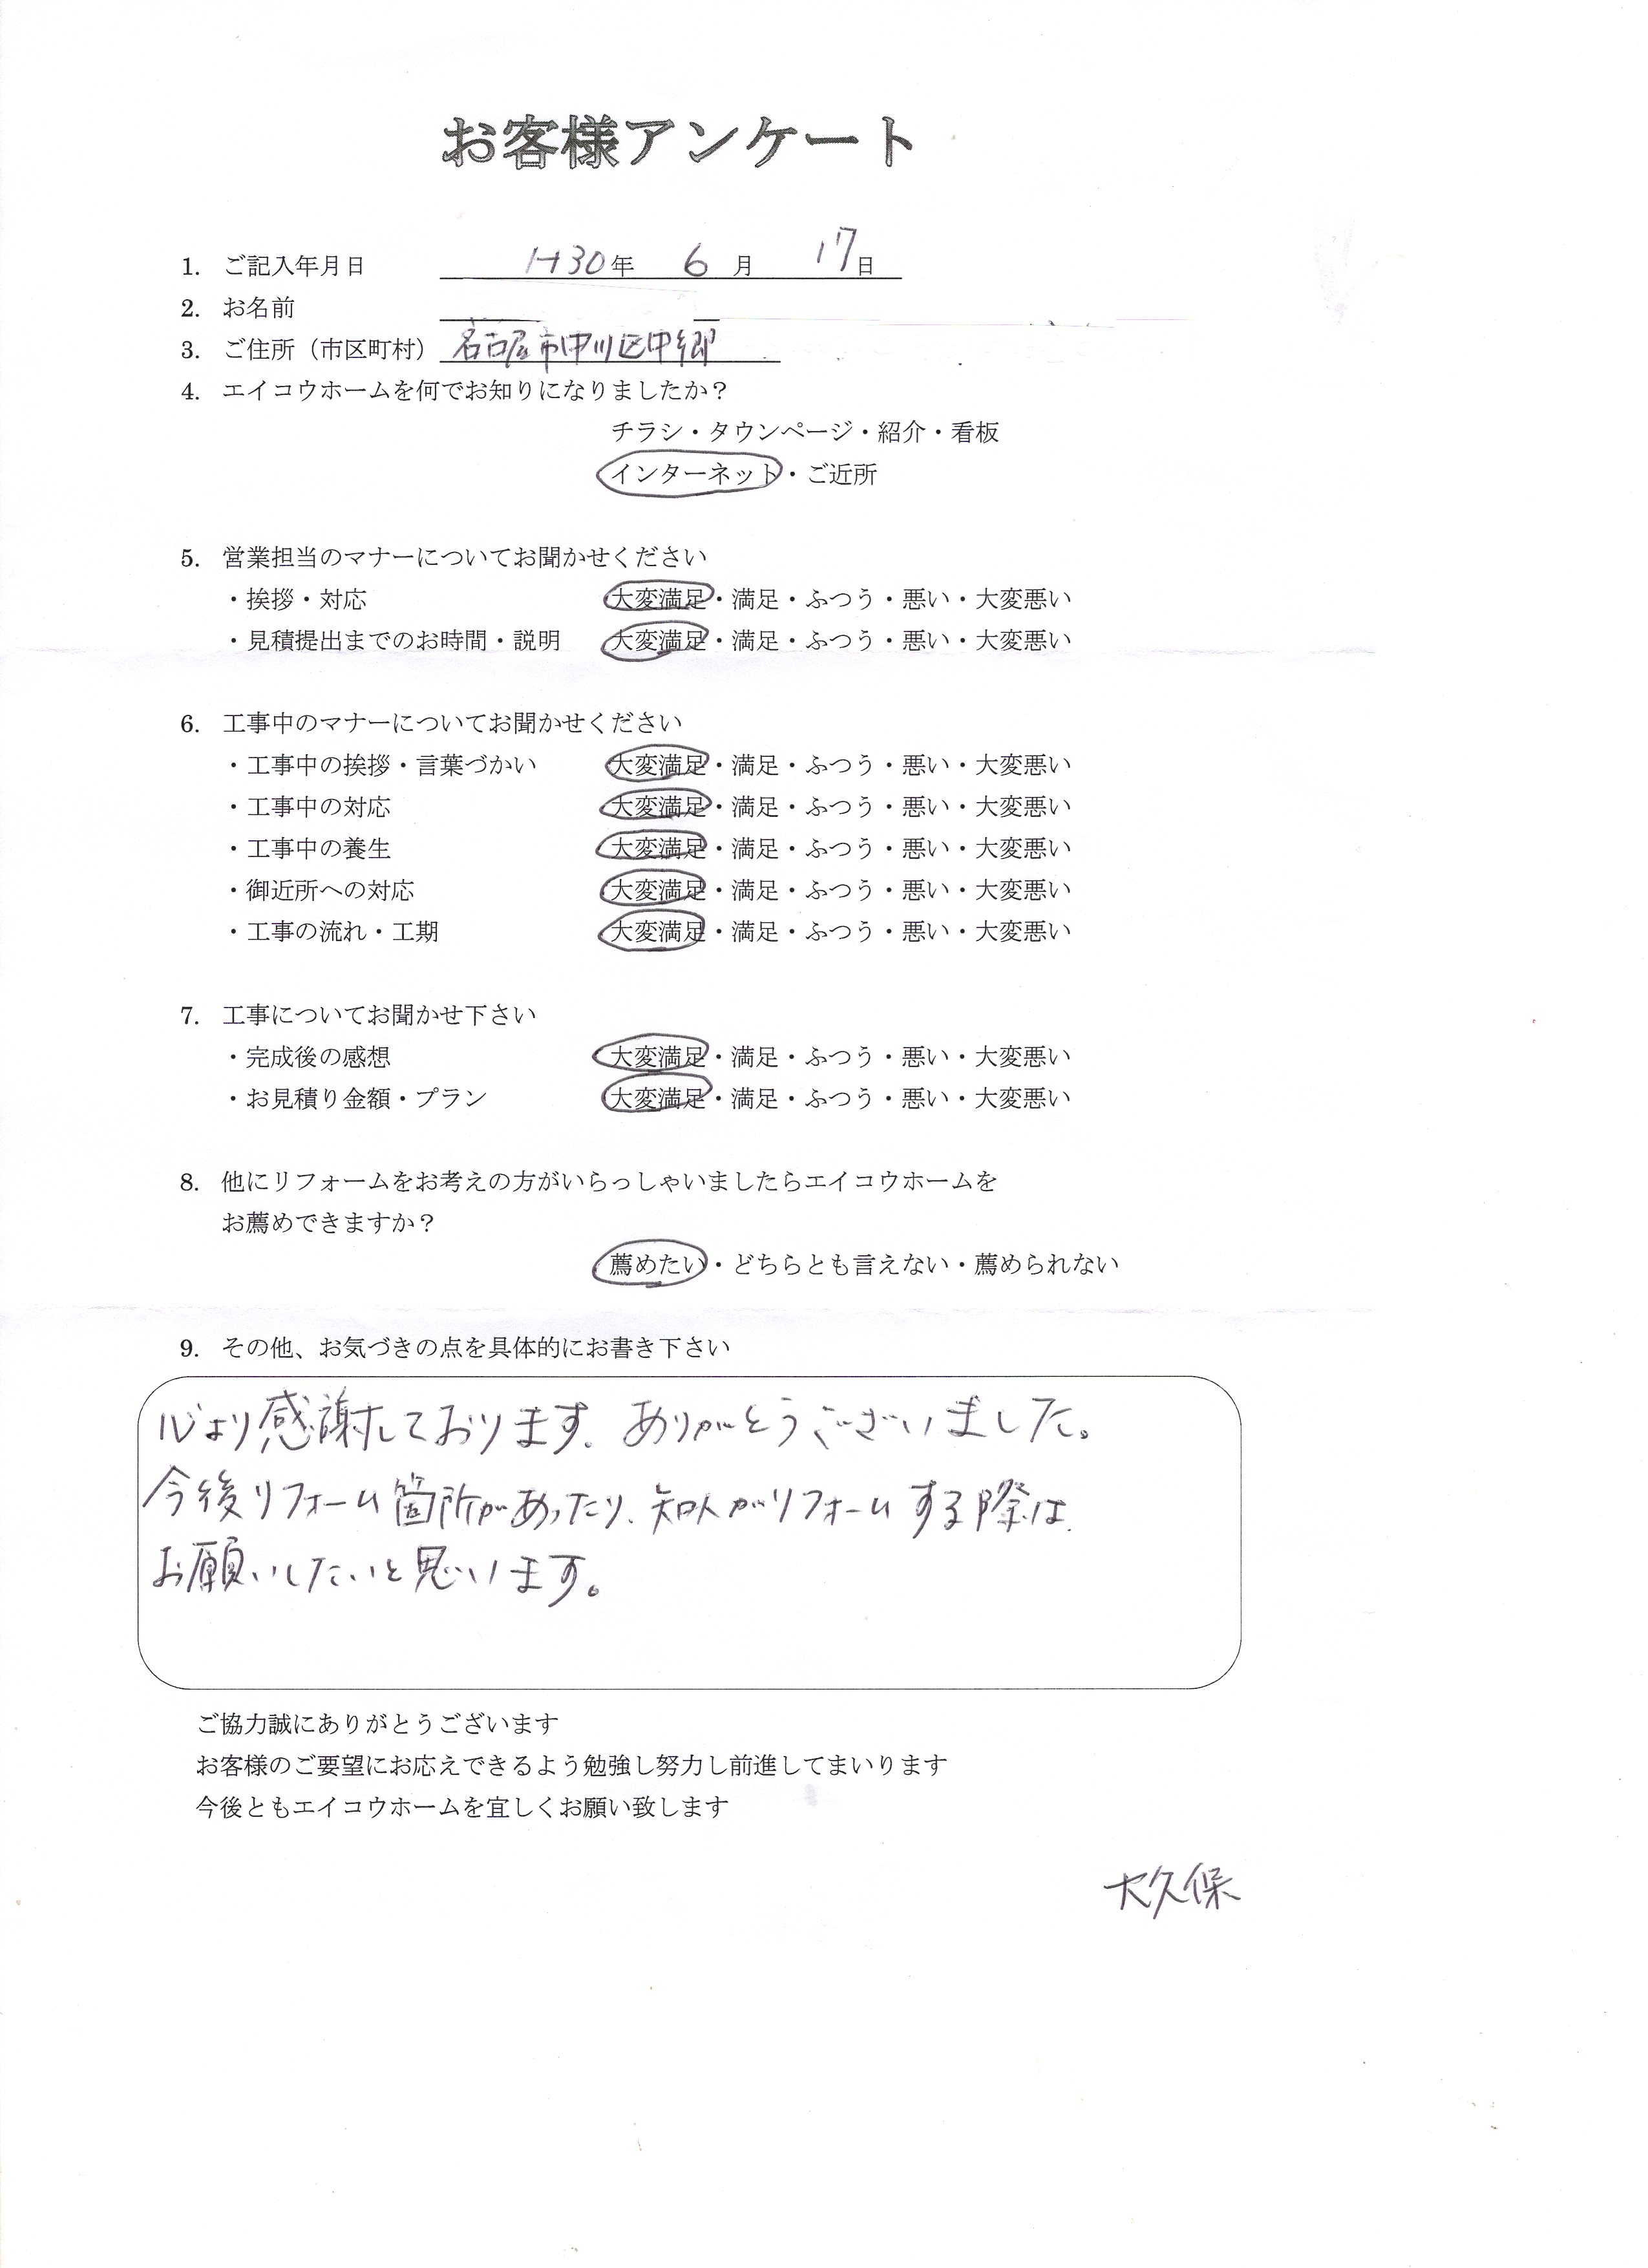 お客様アンケート
1. ご記入年月日 H30年 6月 17日
2. お名前
3. ご住所（市区町村） 名古屋市中川区中郷
4. エイコウホームを何でお知りになりましたか？
チラシ・タウンページ・紹介・看板
インターネット・ご近所
5. 営業担当のマナーについてお聞かせください
・挨拶・対応 大変満足・満足・ふつう・悪い・大変悪い
・見積提出までのお時間・説明 大変満足・満足・ふつう・悪い・大変悪い
6. 工事中のマナーについてお聞かせください
・工事中の挨拶・言葉づかい 大変満足・満足・ふつう・悪い・大変悪い
・工事中の対応 大変満足・満足・ふつう・悪い・大変悪い
・工事中の養生 大変満足・満足・ふつう・悪い・大変悪い
・御近所への対応 大変満足・満足・ふつう・悪い・大変悪い
・工事の流れ・工期 大変満足・満足・ふつう・悪い・大変悪い
7. 工事についてお聞かせ下さい
・完成後の感想 大変満足・満足・ふつう・悪い・大変悪い
・お見積り金額・プラン 大変満足・満足・ふつう・悪い・大変悪い
8. 他にリフォームをお考えの方がいらっしゃいましたらエイコウホームを
お薦めできますか？
薦めたい・どちらとも言えない・薦められない
9. その他、お気づきの点を具体的にお書き下さい
心より感謝しております。ありがとうございました。
今後リフォーム箇所があったり、知人がリフォームする際は、
お願いしたいと思います。
ご協力誠にありがとうございます
お客様のご要望にお応えできるよう勉強し努力し前進してまいります
今後ともエイコウホームを宜しくお願い致します
大久保